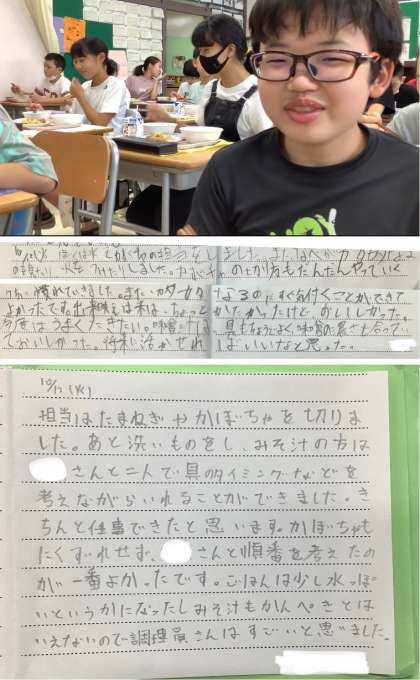 の上がり方もだんだんやっていく
うちに慣れていきました。また、カタカタ
なるのにすぐ気付くことができて
よかったです。出来栄えは米は、ちょっと
かたかったけど、おいしかった。
今度はうまくたきたい。味噌汁は
具もちょうどよく、味噌の量も合ってい
ておいしかった。将来に活かせれ
ばいいなと思った。
10/12(火)
担当はたまねぎやかぼちゃを切りま
した。あと洗いものをし、みそ汁の方は
さんと二人で具のタイミングなどを
考えながらいれることができました。き
ちんと仕事できたと思います。かぼちゃも
にくずれせず、さんと順番を考えたの
が一番よかったです。ごはんは少し水っぽ
いというかになったしみそ汁もかんぺきとは
いえないので調理員さんはすごいと思いました。